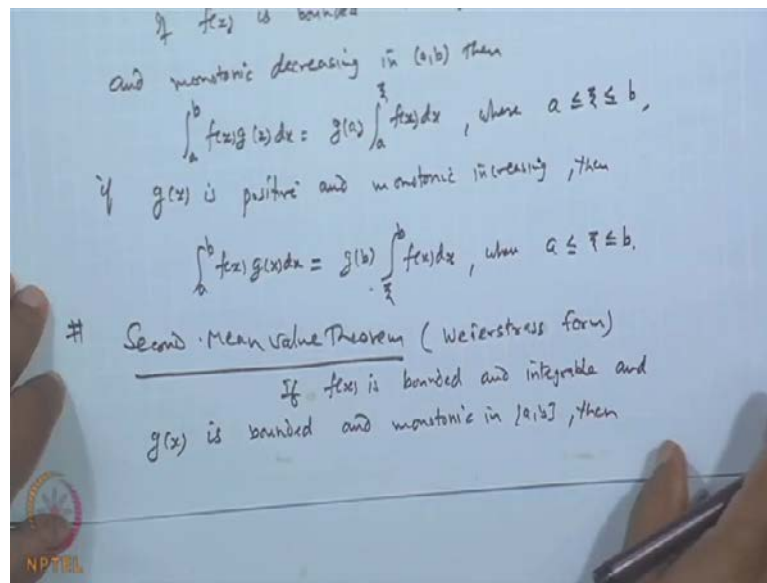 If f(x) is bounded
and monotonic decreasing in (a,b) then
∫_a^b f(x)g(x)dx = g(a) ∫_a^ξ f(x)dx , where a ≤ ξ ≤ b,
if g(x) is positive and monotonic increasing , then
∫_a^b f(x) g(x)dx = g(b) ∫_ξ^b f(x)dx , when a ≤ ξ ≤ b.
# Second Mean Value Theorem ( Weierstrass form)
If f(x) is bounded and integrable and
g(x) is bounded and monotonic in [a,b] , then
NPTEL